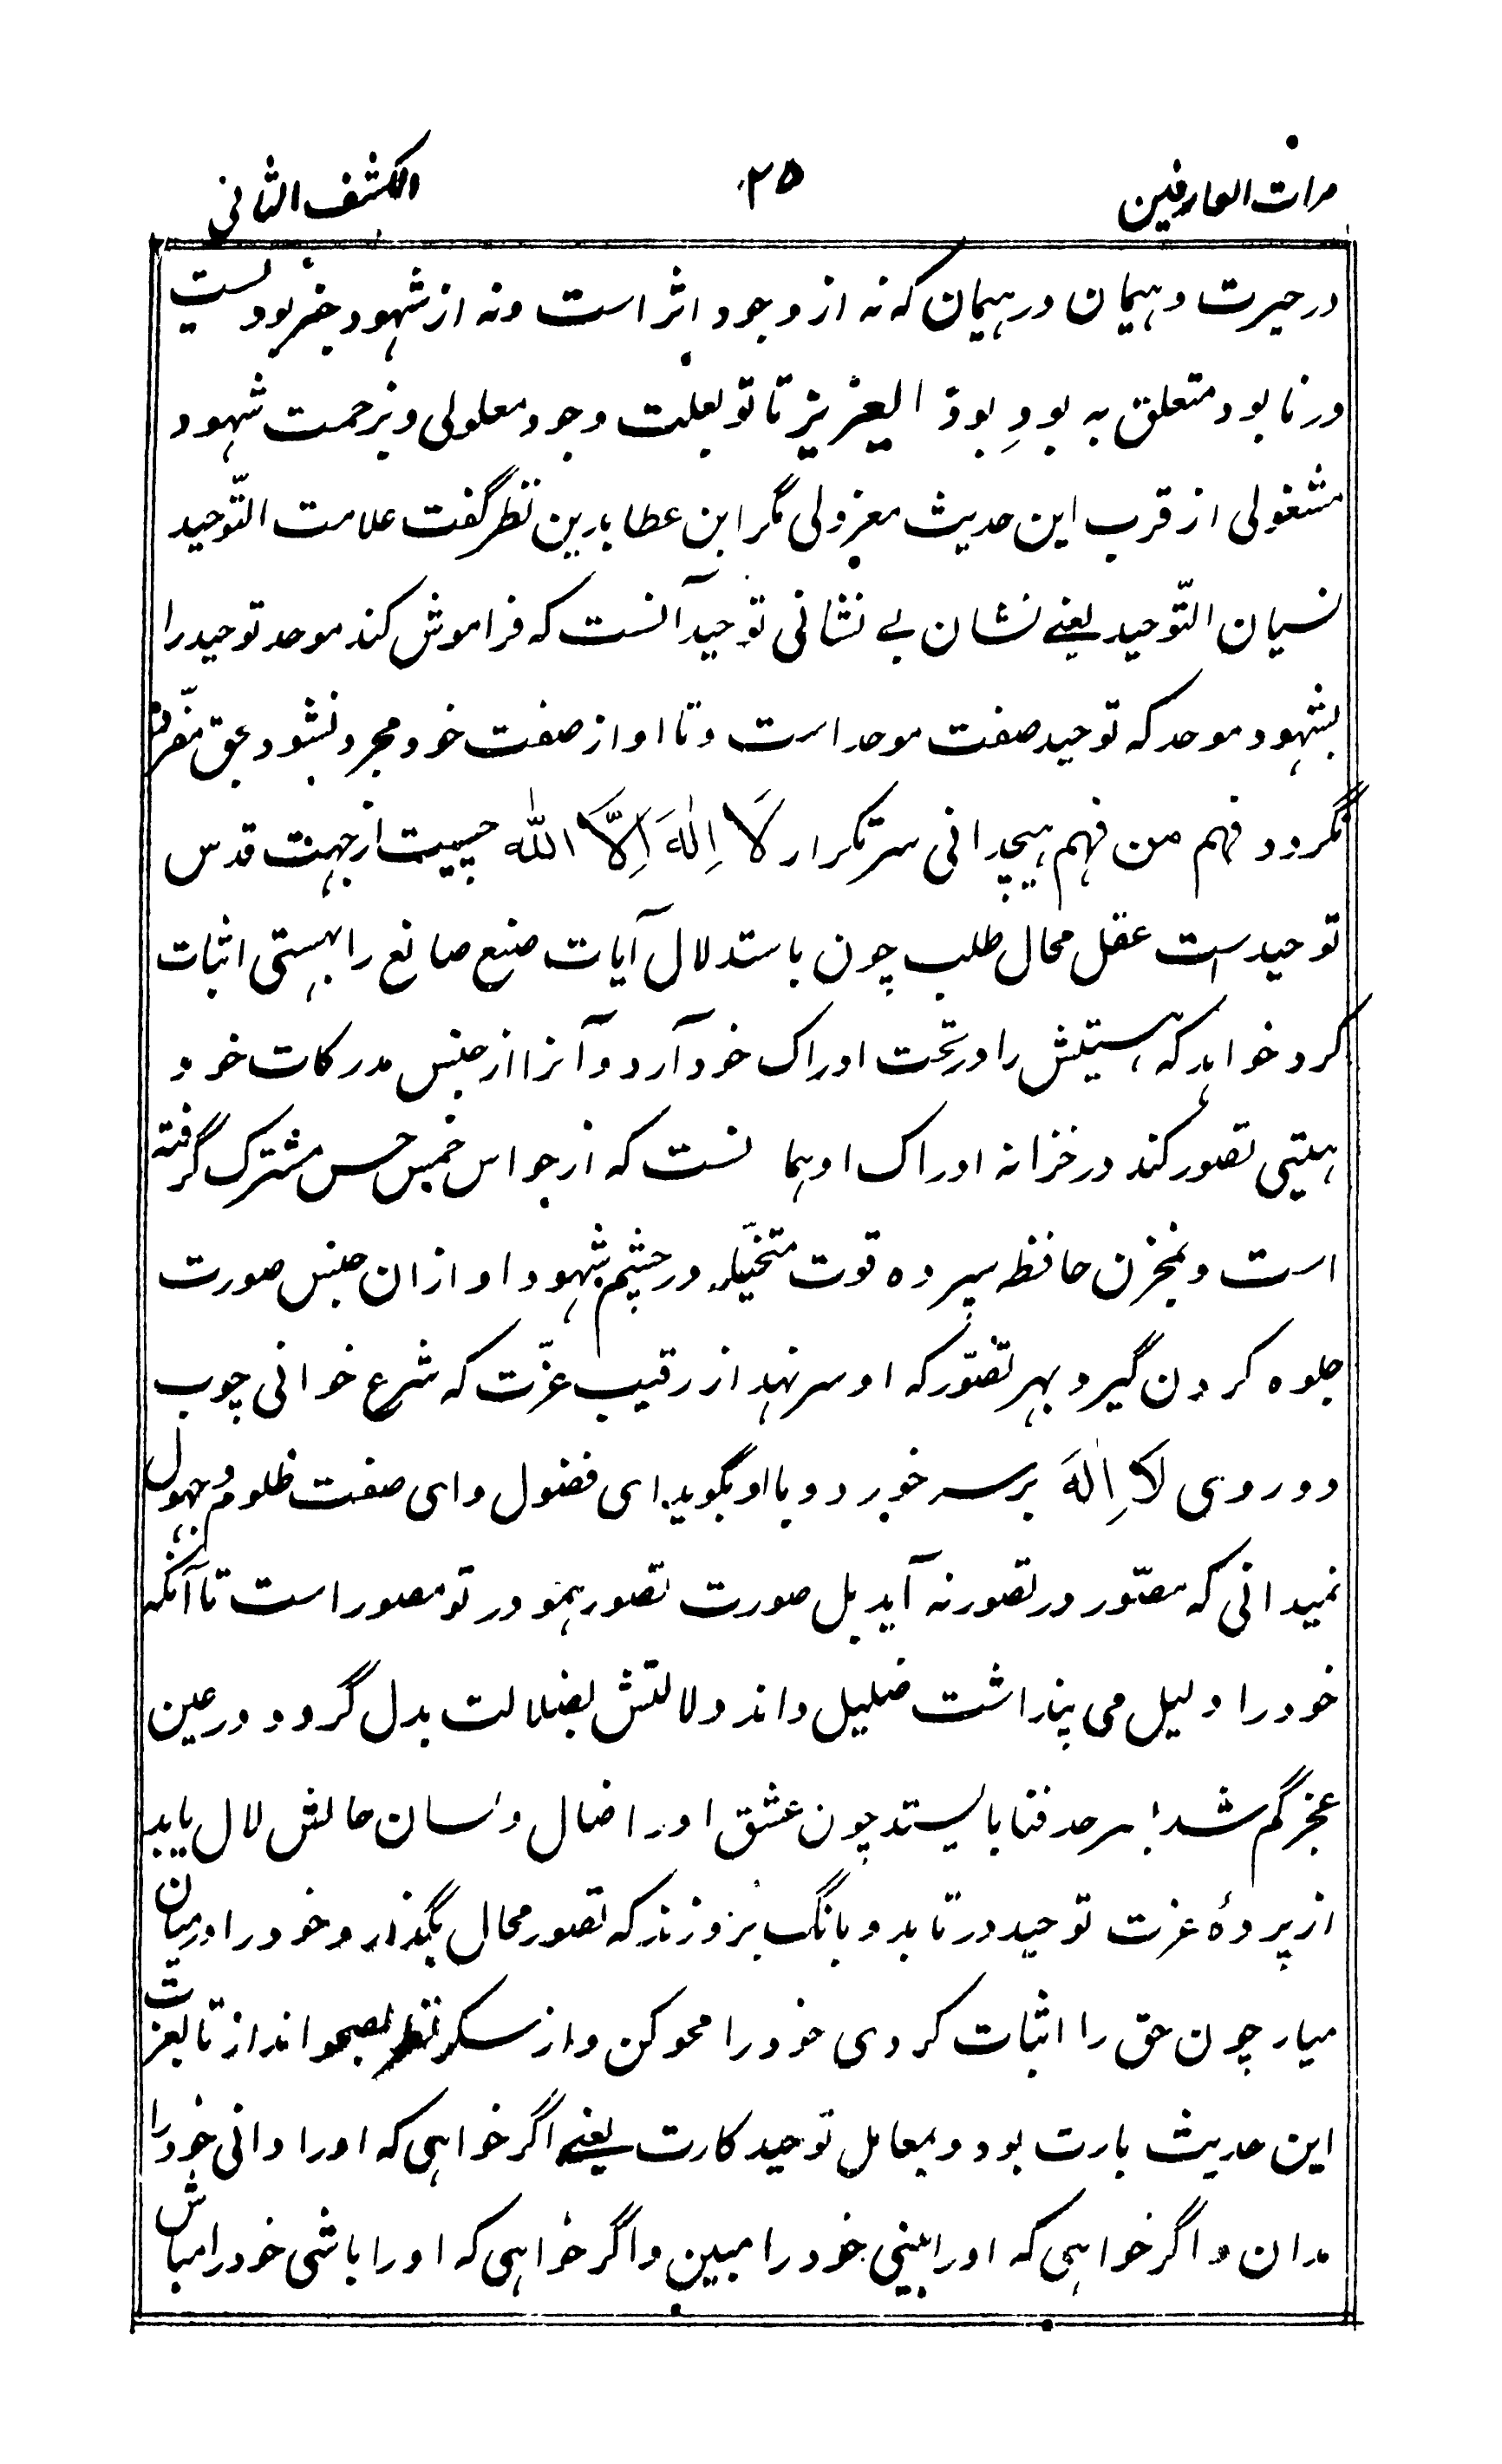 مرات العارفین ۲۵ الکشف الثانی
در حیرت و هیمان در هیمان که نه از وجود اثر است و نه از شهود خبر بودیست
در نابود متعلق به بودِ بود ایعزیز تا تو بعلت وجود معلولی و بزحمت شهود
مشغولی از قرب این حدیث معزولی مگر ابن عطا بدین نظر گفت علامت التّوحید
نسیان التّوحید یعنے نشان بے نشانی توحید آنست که فراموش کند موحد توحید را
بشهود موحد که توحید صفت موحد است و تا او از صفت خود مجرد نشود بحق متفرّد
نگردد فهم من فهم هیچدانی سر تکرار لَا اِلٰهَ اِلَّا اللّٰه چیست از جهت قدس
توحید است عقل محال طلب چون باستدلال آیات صنع صانع را بهستی اثبات
کرد خواهد که هستیش را در تحت ادراک خود آرد و آنرا از جنس مدرکات خود
هیئتی تصور کند در خزانه ادراک او همانست که از حواس خمس حس مشترک گرفته
است و بمخزن حافظه سپرده قوت متخیّله در چشم شهود او از ان جنس صورت
جلوه کردن گیرد بهر تصّور که او سر نهد از رقیب عزّت که شرع خوانی چوب
دو روی لَا اِلٰهَ بر سر خورد و با او بگوید ای فضول و ای صفت ظلوم و جهول
نمیدانی که مصّور در تصور نه آید بل صورت تصور همو در تو مصور است تا آنکه
خود را دلیل می پنداشت ضلیل داند دلالتش بضلالت بدل گردد در عین
عجز گم شد بر سرحد فنا بایستد چون عشق او را ضال و لسان حالش لال یابد
از پردهٔ عزت توحید در تابد و بانگ بزو زند که تصور محال بگذار و خود را درمیان
میار چون حق را اثبات کردی خود را محو کن و از سکر نظر بصحو انداز تا بعزت
این حدیث بارت بود و بمعامل توحید کارت یعنے اگر خواهی که او را دانی خود را
مدان و اگر خواهی که او را بینی خود را مبین و اگر خواهی که او را باشی خود را مباش